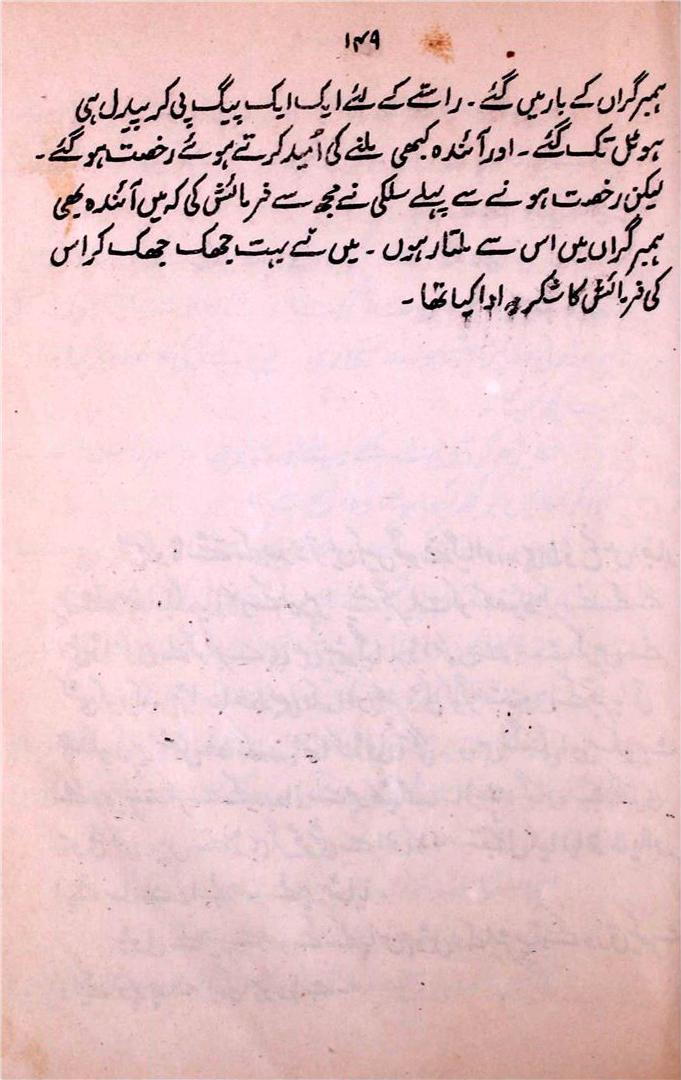 ۱۴۹
ہمبرگراں کے بار میں گئے۔ راستے کے لئے ایک ایک پیگ پی کر پیدل ہی
ہوٹل تک گئے۔ اور آئندہ کبھی ملنے کی اُمید کرتے ہوئے رخصت ہو گئے۔
لیکن رخصت ہونے سے پہلے سلکی نے مجھ سے فرمائش کی کہ میں آئندہ بھی
ہمبرگراں میں اس سے ملتا رہوں۔ میں نے بہت جھک جھک کر اس
کی فرمائش کا شکریہ ادا کیا تھا۔